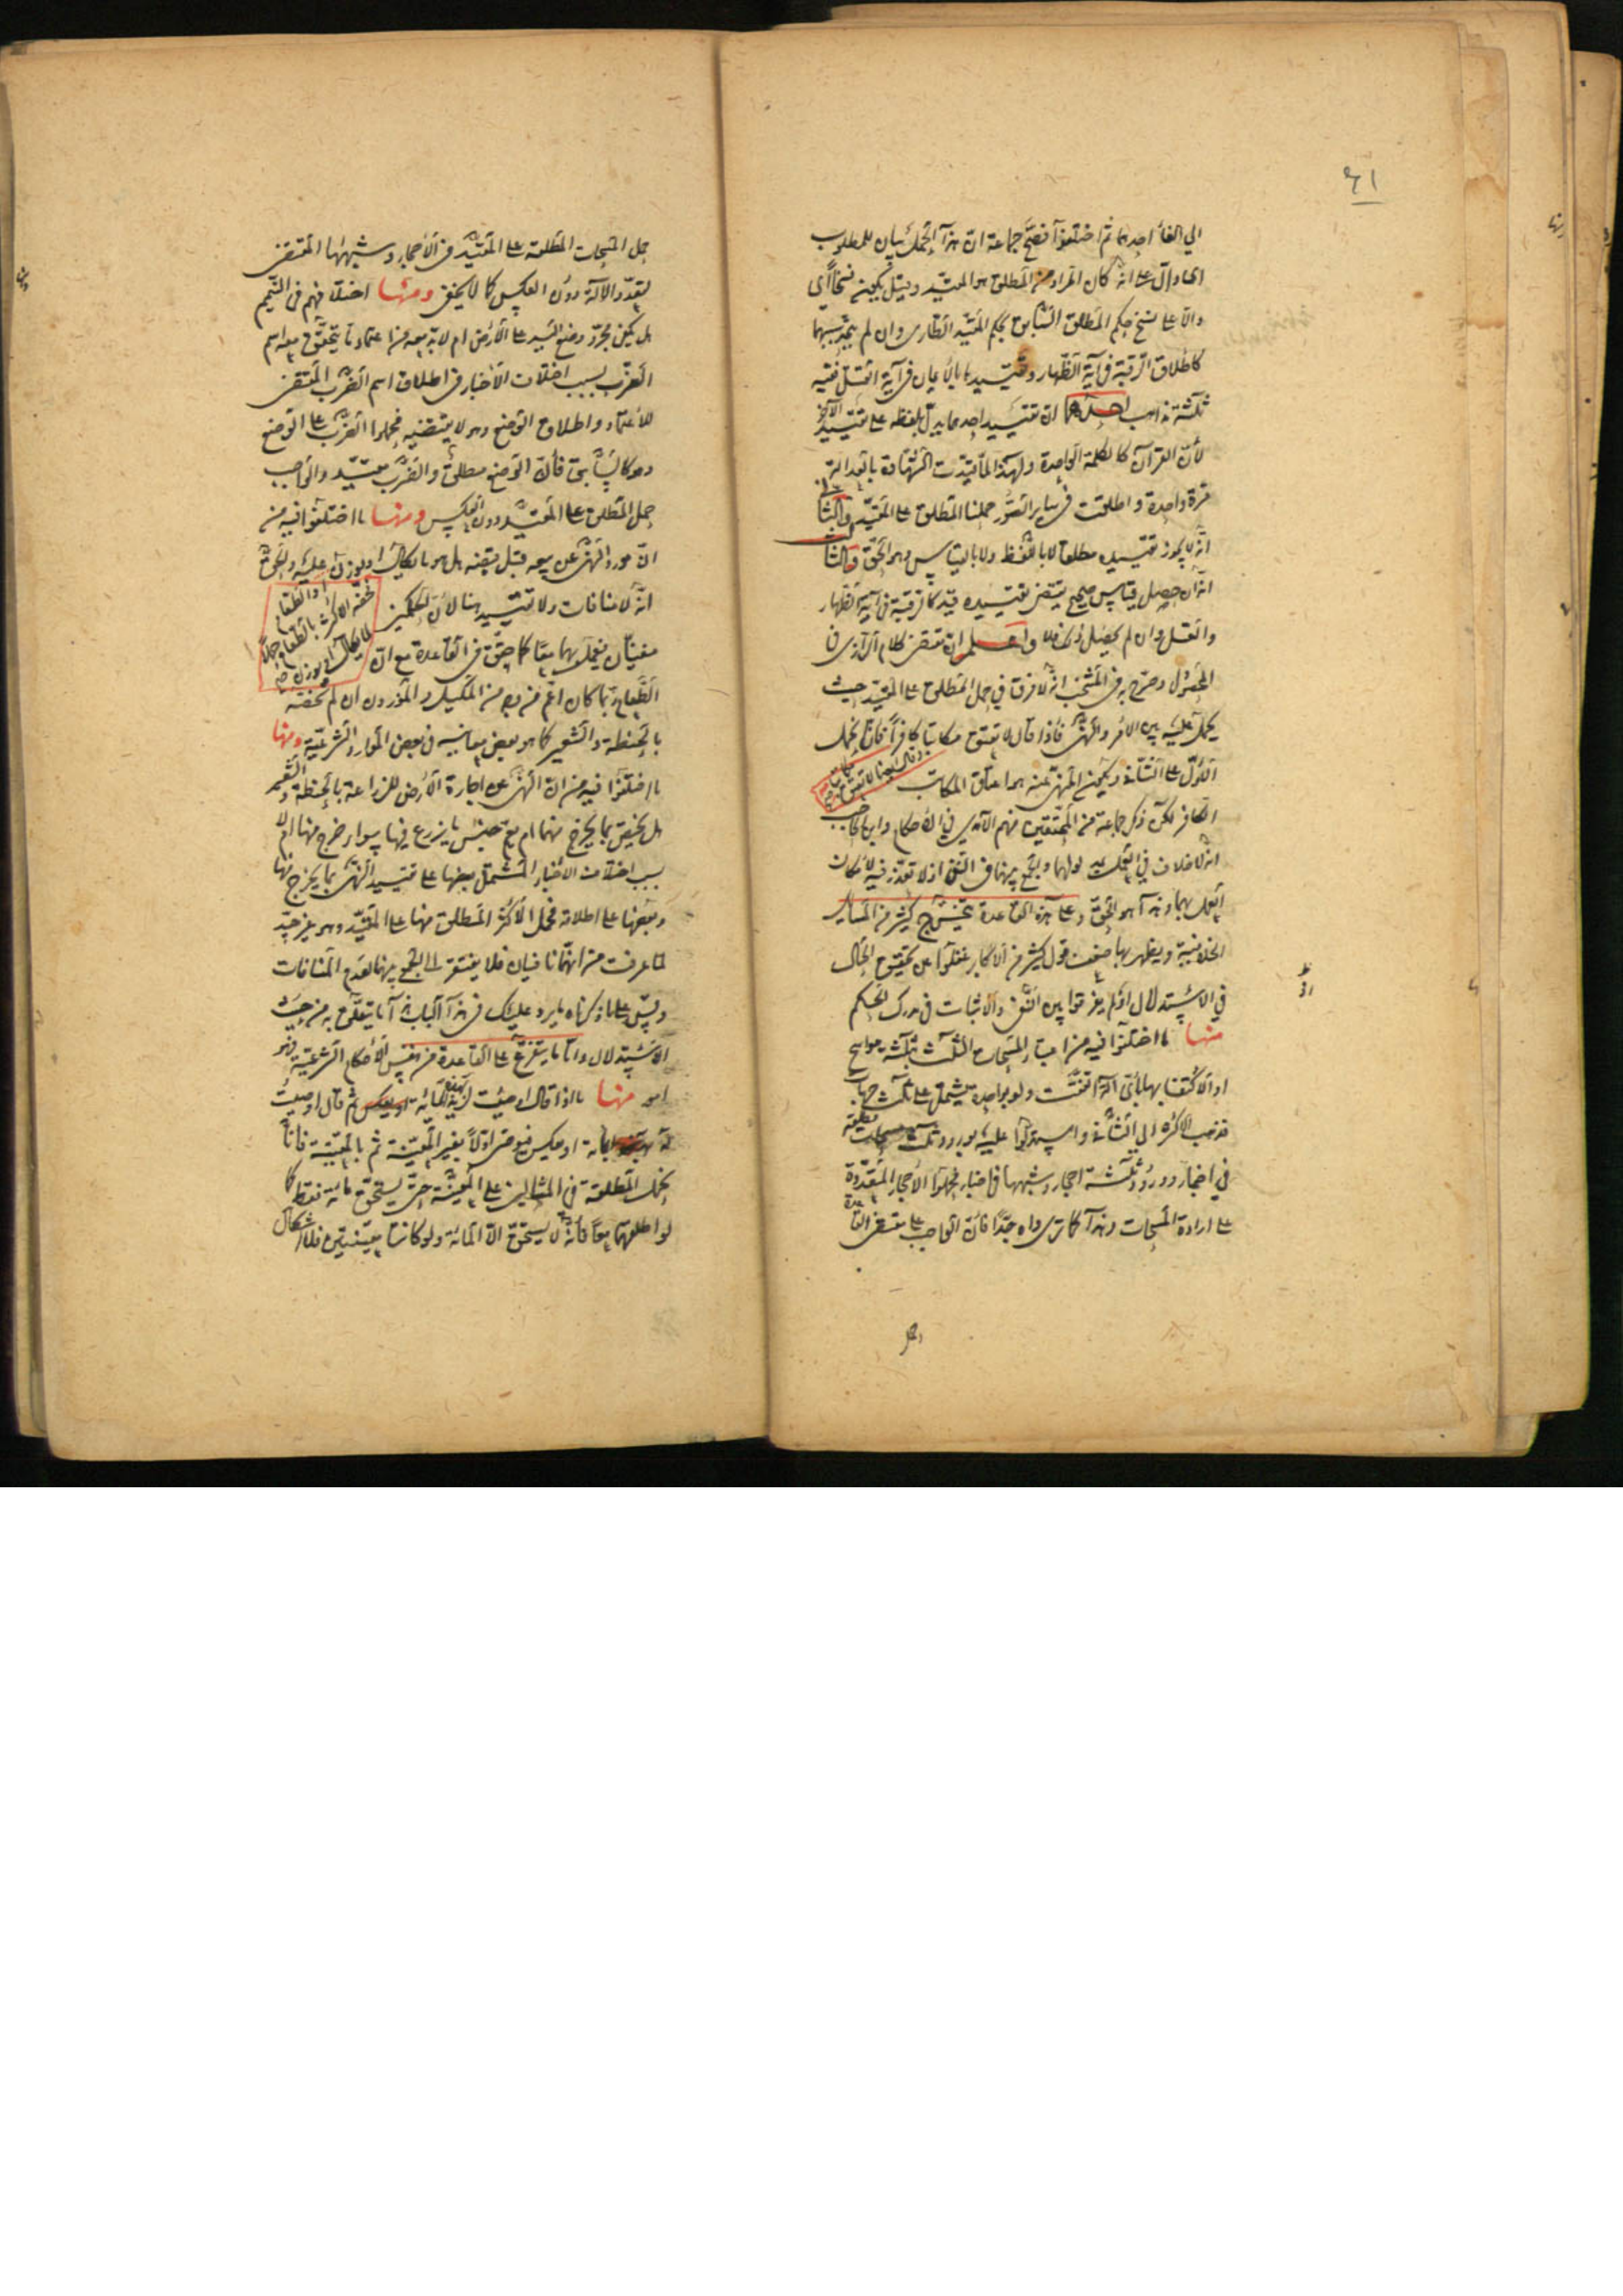 ٤١
الي الغاء احدهما ثم اختلفوا فصحح جماعة ان هذا الحمل بيان للمطلوب
اي دال على انه كان المراد من المطلق هو المقيد وقيل يكون نسخا اي
دالا على نسخ حكم المطلق السابق بحكم المقيد الطاري وان لم يتحد سببهما
كاطلاق الرقبة في آية الظهار وتقييدها بالايمان في آية القتل ففيه
ثلثة مذاهب احدها ان تقييد احدهما يدل بلفظه على تقييد الآخر
لأن القرآن كالكلمة الواحدة ولهذا لما قيدت الشهادة بالعدالة
مرة واحدة واطلقت في ساير الصور حملنا المطلق على المقيد والثاني
انه لا يجوز تقييده مطلقا لا باللفظ ولا بالقياس وهو الحق والثالث
انه ان حصل قياس صحيح يقتضي تقييده قيد كالرقبة في آية الظهار
والقتل وان لم يحصل ذلك فلا واعلم ان مقتضى كلام الرازي في
المحصول وصرح به في المنتخب انه لا فرق في حمل المطلق على المقيد حيث
يحمل عليه بين الامر والنهي فاذا قال لا تعتق مكاتبا كافرا فانا نحمل
وقال ايضا لا تعتق مكاتبا
الاول على الثاني ويكون المنهي عنه هو اعتاق المكاتب
الكافر لكن ذكر جماعة من المحققين منهم الآمدي في الاحكام وابن الحاجب
انه لا خلاف في العمل بمدلولهما والجمع بينهما في النفي اذ لا تعذر فيه لامكان
العمل بهما وهذا هو الحق وعلى هذه القاعدة يتخرج كثير من المسايل
الخلافية ويظهر بها ضعف قول كثير من الاكابر غفلوا عن تحقيق الحال
في الاستدلال او لم يفرقوا بين النفي والاثبات في مدرك الحكم
منها ما اختلفوا فيه من اعتبار المسحات الثلث بثلثة مواسح
او الاكتفا بها بأي آلة اتفقت ولو بواحدة يشتمل على ثلث جهات
فذهب الاكثر الي الثاني واستدلوا عليه بورود ثلث مسحات مطلقة
في اخبار وورود ثلثة احجار وشبهها في اخبار فحملوا الاحجار المتعددة
على ارادة المسحات وهذا كما ترى واه جدا فان الواجب على مقتضى القاعدة
حمل المسحات المطلقة على المقيد في الاحجار وشبهها المقتضي
لتعدد الآلة دون العكس كما لا يخفى ومنها اختلافهم في التيمم
هل يكفي مجرد وضع اليد على الارض ام لا بد معه من اعتماد ما يتحقق معه اسم
الضرب بسبب اختلاف الاخبار في اطلاق اسم الضرب المقتضي
للاعتماد واطلاق الوضع وهو لا يقتضيه فحملوا الضرب على الوضع
وهو كالسابق فأن الوضع مطلق والضرب مقيد والواجب
حمل المطلق على المقيد دون العكس ومنها ما اختلفوا فيه من
ان مورد النهي عن بيعه قبل قبضه هل هو ما يكال او يوزن عليه والحق
او الطعام
خصه الاكثر بالطعام حملا
لما يكال او يوزن عليه
انه لا منافات ولا تقييد هنا لأن الحكمين
منفيان فيعمل بهما معا كما حقق في القاعدة مع ان
الطعام ربما كان اعم من وجه من المكيل والموزون ان لم نخصه
بالحنطة والشعير كما هو بعض معانيه في بعض الموارد الشرعية ومنها
ما اختلفوا فيه من ان النهي عن اجارة الارض للزراعة بالحنطة والشعير
هل يختص بما يخرج منها ام يعم جنس ما يزرع فيها سواء خرج منها ام لا
بسبب اختلاف الاخبار المشتمل بعضها على تقييد النهي بما يخرج منها
وبعضها على اطلاقه فحمل الاكثر المطلق منها على المقيد وهو غير جيد
لما عرفت من انهما نافيان فلا يفتقر الى الجمع بينهما لعدم المنافات
وقس على ما ذكرناه ما يرد عليك في هذا الباب هذا ما يتعلق به من حيث
الاستدلال واما ما يتفرع على القاعدة من نفس الاحكام الشرعية فهو
امور منها ما اذا قال اوصيت لزيد بهذه المائة ثم قال اوصيت
له بمائة او عكس فيوصى اولا بغير المعينة ثم بالمعينة فانا
نحمل المطلقة في المثالين على المعينة حتى يستحق مائة فقط كما
لو اطلقهما معا فانه لا يستحق الا المائة ولو كانتا معينتين فلا اشكال